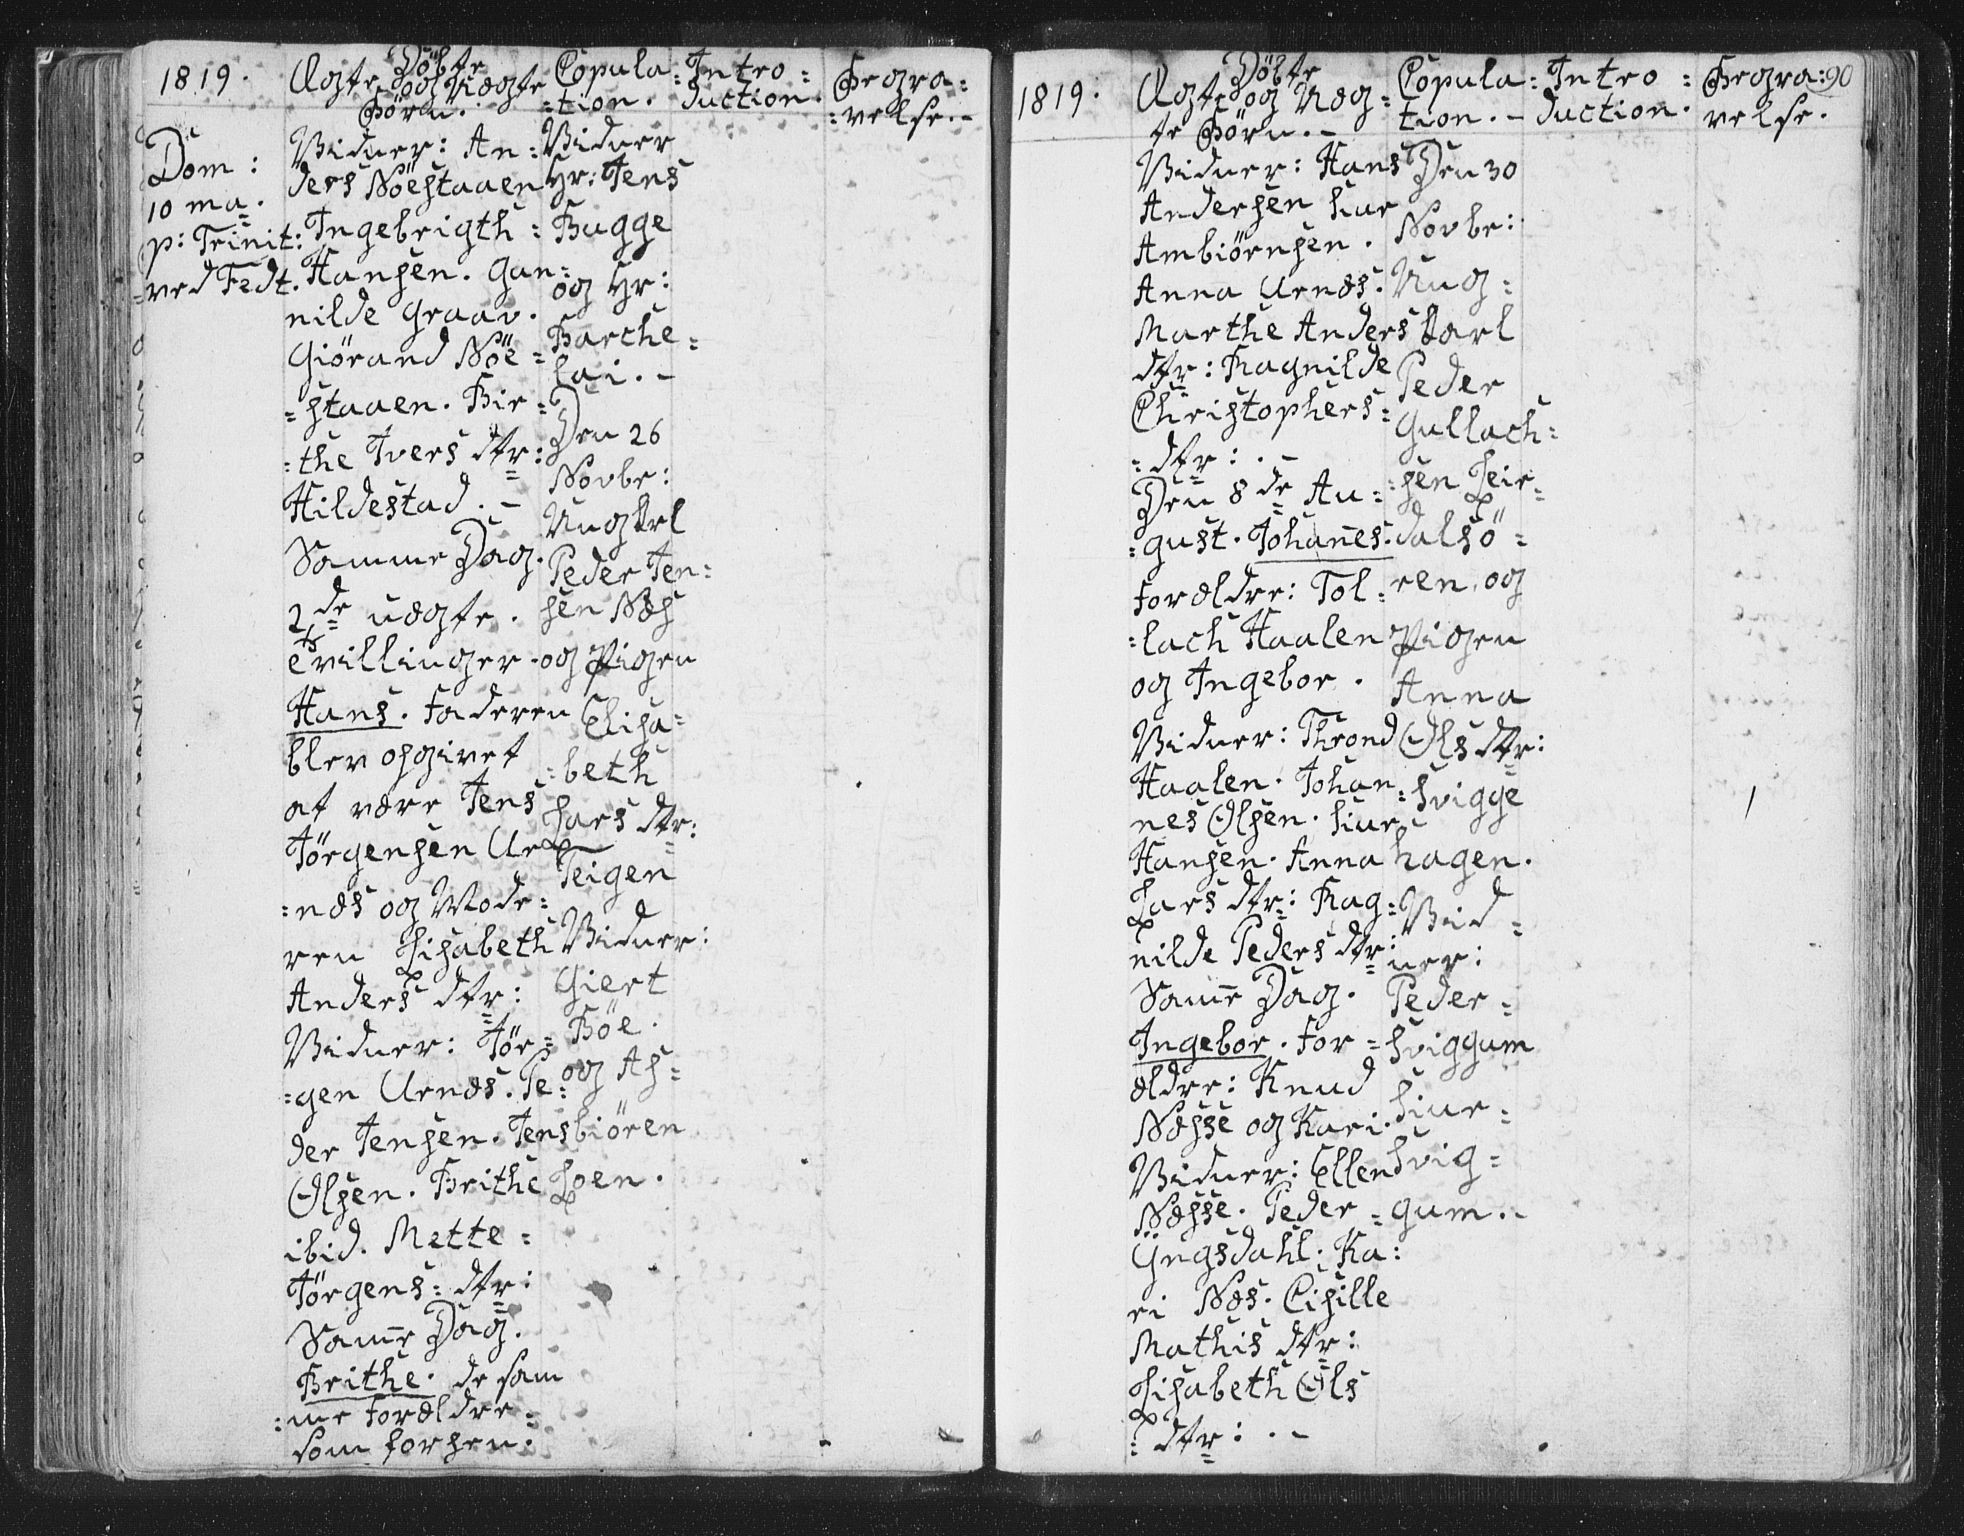 1819.
Døbte
Ægte og Uægte
Børn.
Copula=
=tion.
Intro=
duction.
Begra=
=velse.-
Dom:
10 ma.
p: Trinit:
ved Fedt.
Vidner: An=
ders Nöestaaen
Ingebrigth=
Hansen. Gun=
nilde Graav.
Giörand Nöe=
=staaen. Bir=
=the Ivers dtr:
Hildestad.-
Samme Dag.
2de uægte.
tvillinger.
Hans. Faderen
blev opgivet
at være Jens
Jörgensen Ur
=næs og Mode=
ren Lisabeth
Anders dtr:
Vidner: Jör=
=gen Urnæs. Pe=
der Jensen. Jens
Olsen. Brithe
ibid. Mette=
Jörgens=dtr:
Samme Dag.
Brithe. de sam
=me Forældre=
som forhen.
Vidner
Hr: Jens
Bugge
og Hr:
Barthe=
lai.-
Den 26
Novbr:
Ungkrl
Peder Jen=
sen Næs
og Pigen
Elisa=
=beth
Lars dtr:
Teigen
Vidner:
Giert
Böe.
og As=
biören
Loen.
1819.
Døbte
Ægte og Uæg=
te Børn.-
Copula=
tion.-
Intro=
duction.
Begra=
velse.
90
Vidner: Hans
Andersen Siur
Ambiörnsen.
Anna Urnæs.
Marthe Anders
dtr: Ragnilde
Christophers=
=dtr:.-
Den 8de Au=
=gust. Johanes.
Forældre: Tol=
=lach Haalen
og Ingebor.
Vidner: Thrond
Haalen. Johan=
nes Olsen. Siur
Hansen. Anna
Lars dtr: Rag=
nilde Peders dtr:
Same Dag.
Ingebor. For=
ældre: Knud
Næsse og Kari.
Vidner: Ellen
Næsse. Peder=
Yngsdahl. Ka=
ri Næs. Cisille
Mathis dtr:
Lisabeth Ols
=dtr:.-
Den 30
Novbr:
Ung=
karl
Peder
Gullach=
=sen Leir=
dalsö=
ren, og
Pigen
Anna
Ols dtr:
Svigge
hagen.
Vid=
ner:
Peder=
Sviggum
Siur=
Svig=
gum.-